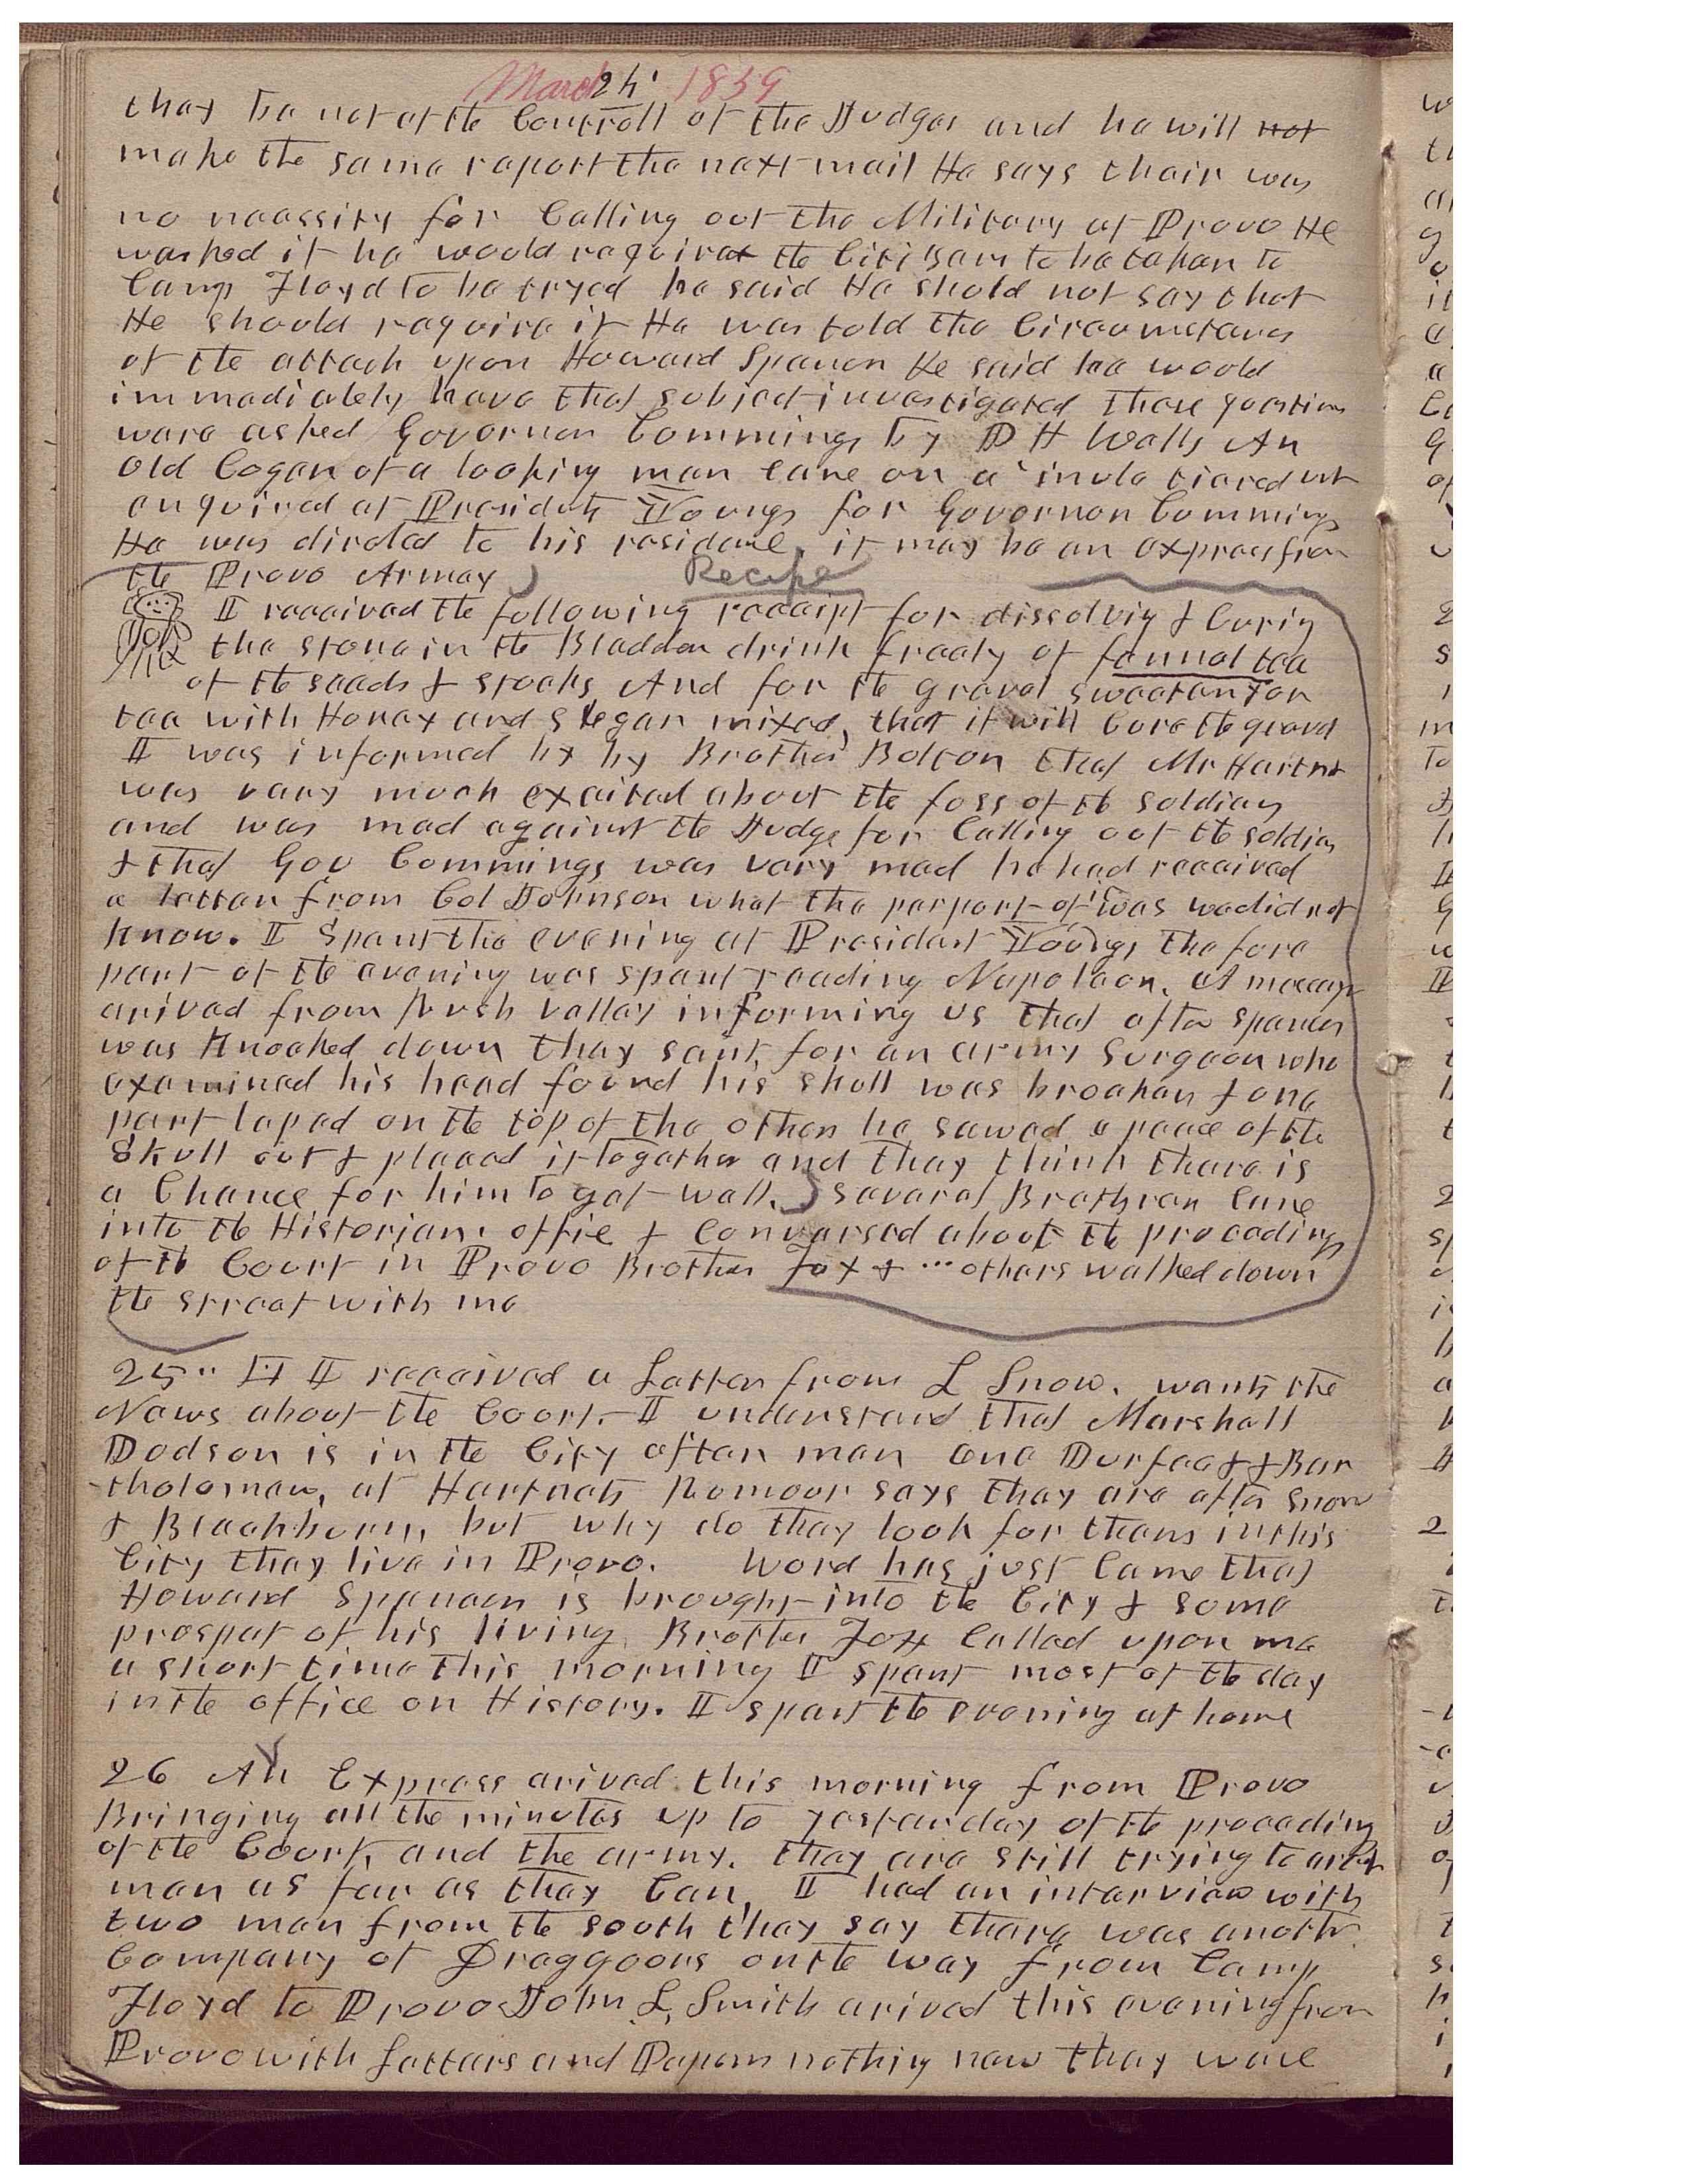 March 24' 1859
they be not at the Controll of the Judges and he will not
make the same report the next mail He says their was
no necessity for Calling out the Military at Provo He
was ked if he would require the Citizens to be taken to
Camp Floyd to be tryed he said He shold not say that
He should require it He was told the Circumstances
of the attack upon Howard Spencer He said he would
immediately have that subject investigated These questions
were asked Governor Cummings by D H Wells An
old looking man came on a mule
enquired at President Youngs for Governor Cummings
He was directed to his residence. it may be an express from
the Provo Armey
Recipe
I received the following receipt for dissolving & Curing
the stone in the Bladder drink freely of fennel tea
of the seeds & stocks And for the gravel sweeten
tea with Honey and mixed, that it will Cure the gravel
I was informed by by Brother Bolton that Mr Hartnet
was very much excited about the foss of the soldiers
and was mad against the Judge for Calling out the soldiers
& that Gov Cummings was very mad he had received
a letter from Col Johnson what the purport of it was we did not
know. I Spent the evening at President Youngs the fore
part of the evening was spent reading Napoleon. A messenger
arived from Rush valley informing us that after spencer
was Knocked down they sent for an army Surgeon who
examined his head found his skull was broaken & one
part laped on the top of the other he sawed a peace of the
Skull out & placed it together and they think there is
a Chance for him to get well. Several Brethren Came
into the Historians office & Conversed about the proceedings
of the Court in Provo Brother Fox & ... others walked down
the street with me
25" I received a Letter from L Snow. wants the
News about the Court. I understand that Marshall
Dodson is in the City after men one Durfee & & Bar
tholomew, at Hartnets Rumour says they are after Snow
& Blackburn, but why do they look for them in this
City they live in Provo. Word has just Came that
Howard Spencer is brought into the City & some
prospet of his living Brother Fox Called upon me
a short time this morning I spent most of the day
in the office on History. I spent the evening at home
26 An Express arived this morning from Provo
Bringing all the minutes up to yesterday of the proceding
of the Court, and the army. they are still trying to arest
men as far as they Can, I had an interview with
two men from the South they say there was another
Company of Draggoons on the way from Camp
Floyd to Provo John L, Smith arived this evening from
Provo with Letters and Papers nothing new they were